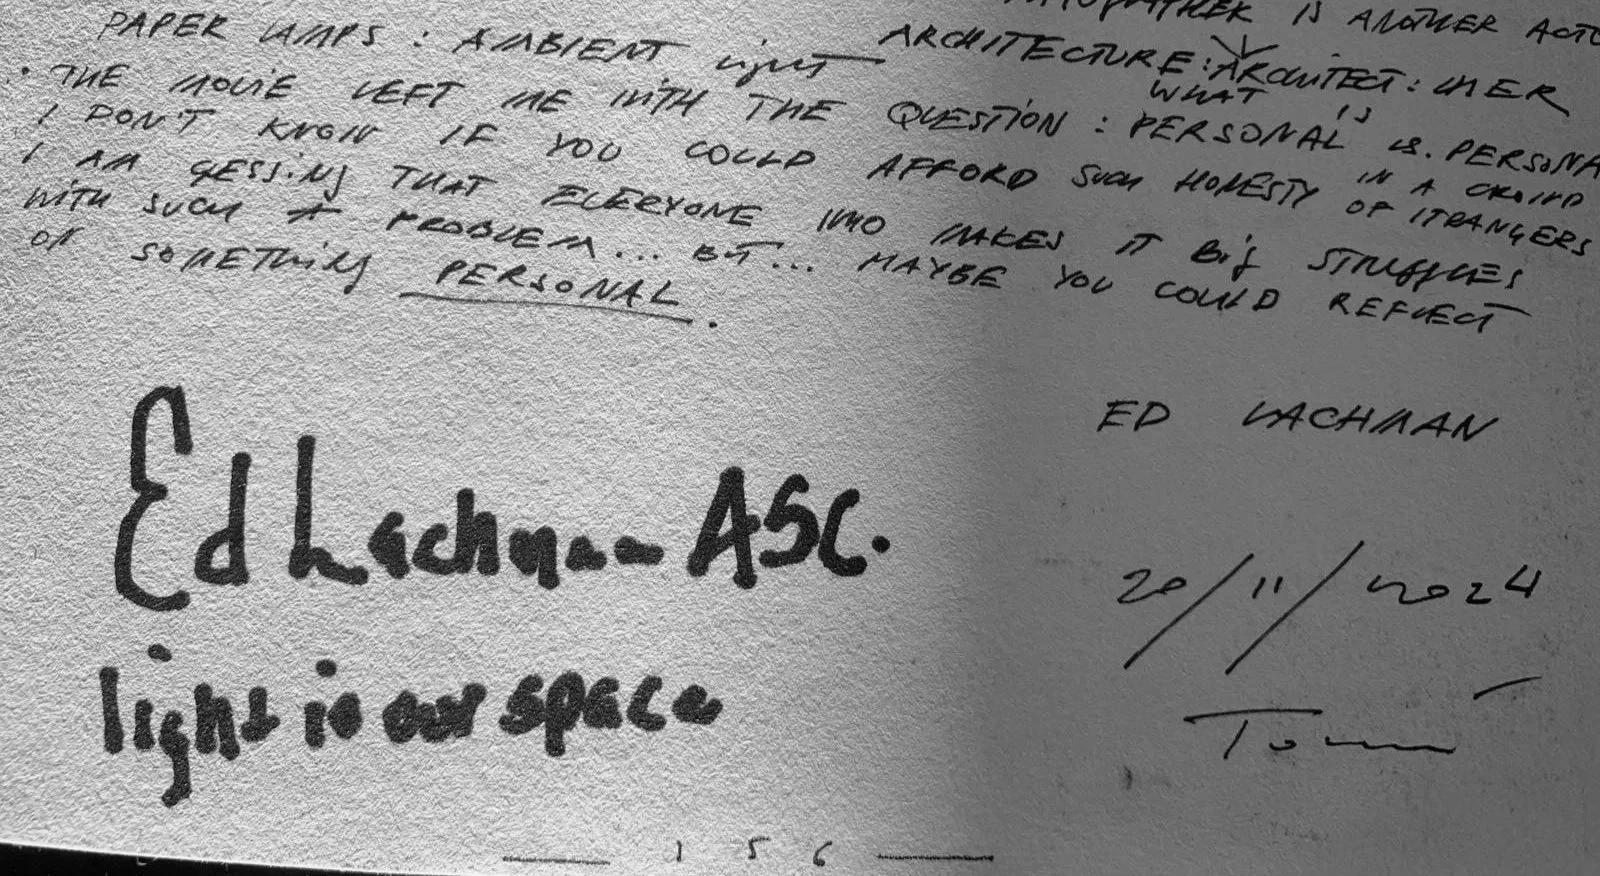 IS ANOTHER
PAPER LAMPS : AMBIENT light ARCHITECTURE : ARCHITECT :
• THE MOVIE LEFT ME WITH THE QUESTION : WHAT IS PERSONAL vs. PERSONA
I DON'T KNOW IF YOU COULD AFFORD SUCH HONESTY IN A CROWD OF STRANGERS
I AM GESSING THAT EVERYONE WHO MAKES IT Big STRUGGLES
WITH SUCH A PROBLEM... BUT... MAYBE YOU COULD REFLECT
ON SOMETHING PERSONAL.
ED LACHMAN
Ed Lachman ASC.
20/11/2024
light is our space
156